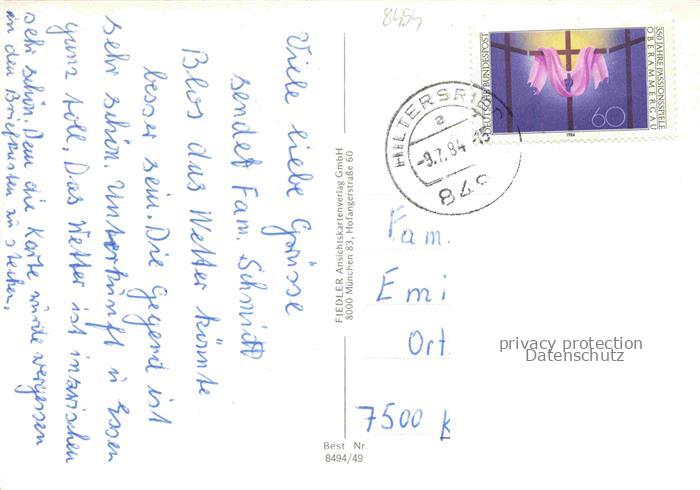 8494
Viele liebe Grüsse
sendet Fam. Schmidt
Blos das Wetter könnte
besser sein. Die Gegend ist
sehr schön. Unterkünft u Essen
ganz toll, Das Wetter ist inzwischen
sehr schön. Den die Karte würde vergessen
in den Briefkasten zu stecken,
FIEDLER Ansichtskartenverlag GmbH
8000 München 83, Hofangerstraße 60
Best Nr.
8494/49
DEUTSCHE BUNDESPOST
350 JAHRE PASSIONSSPIELE
OBERAMMERGAU
60
1984
HILTERSRIED
a
-9.7.84
849
Fam.
Emi
Ort
7500 K
privacy protection
Datenschutz